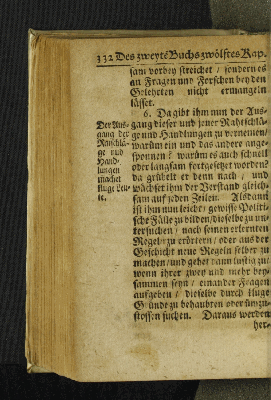 332 Des zweytē Buchs zwölftes Kap.
sam vorbey streichet / sondern es
an Fragen und Forschen bey den
Gelehrten nicht ermangeln
lässet.
6. Da gibt ihm nun der Aus-
gang dieser und jener Rahtschlä-
ge und Handlungen zu vernemen/
warüm ein und das andere ange-
sponnen? warüm es auch schnell
oder langsam fortgesetzet worden?
da grübelt er denn nach / und
wächset ihm der Verstand gleich-
sam auf jeden Zeilen. Alsdann
ist ihm nun leicht / gewisse Politi-
sche Fälle zu bilden / dieselbe zu un-
tersuchen / nach seinen erlernten
Regeln zu erörtern / oder aus der
Geschicht neue Regeln selber zu
machen / und gehet dann lustig zu/
wenn ihrer zwey und mehr bey-
sammen seyn / einander Fragen
aufgeben / dieselbe durch kluge
Gründe zu behaubten oder ümzu-
stossen suchen. Daraus werden
her-
Der Aus-
gang der
Rahtschlä-
ge und
Hand-
lungen
machet
kluge Leu-
te.